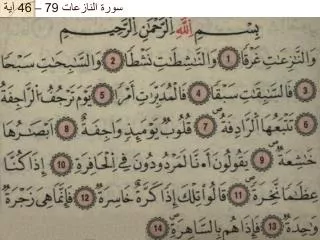 سورة النازعات 79 – 46 آية
بِسْمِ اللَّهِ الرَّحْمَٰنِ الرَّحِيمِ
وَالنَّزِعَتِ غَرْقًا ١ وَالنَّشِطَتِ نَشْطًا ٢ وَالسَّبِحَتِ سَبْحًا
٣ فَالسَّبِقَتِ سَبْقًا ٤ فَالْمُدَبِّرَتِ أَمْرًا ٥ يَوْمَ تَرْجُفُ الرَّاجِفَةُ
٦ تَتْبَعُهَا الرَّادِفَةُ ٧ قُلُوبٌ يَوْمَئِذٍ وَاجِفَةٌ ٨ أَبْصَرُهَا
خَشِعَةٌ ٩ يَقُولُونَ أَءِنَّا لَمَرْدُودُونَ فِي الْحَافِرَةِ ١٠ إِذَا كُنَّا
عِظَمًا نَّخِرَةً ١١ قَالُوا تِلْكَ إِذًا كَرَّةٌ خَاسِرَةٌ ١٢ فَإِنَّمَا هِيَ زَجْرَةٌ
وَحِدَةٌ ١٣ فَإِذَا هُم بِالسَّاهِرَةِ ١٤